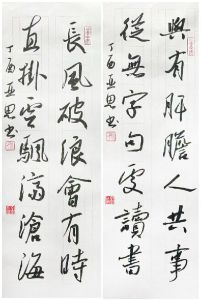 與有肝膽人共事
從無字句處讀書
丁酉亚思书
長風破浪會有時
直掛雲颿濟滄海
丁酉亚思书